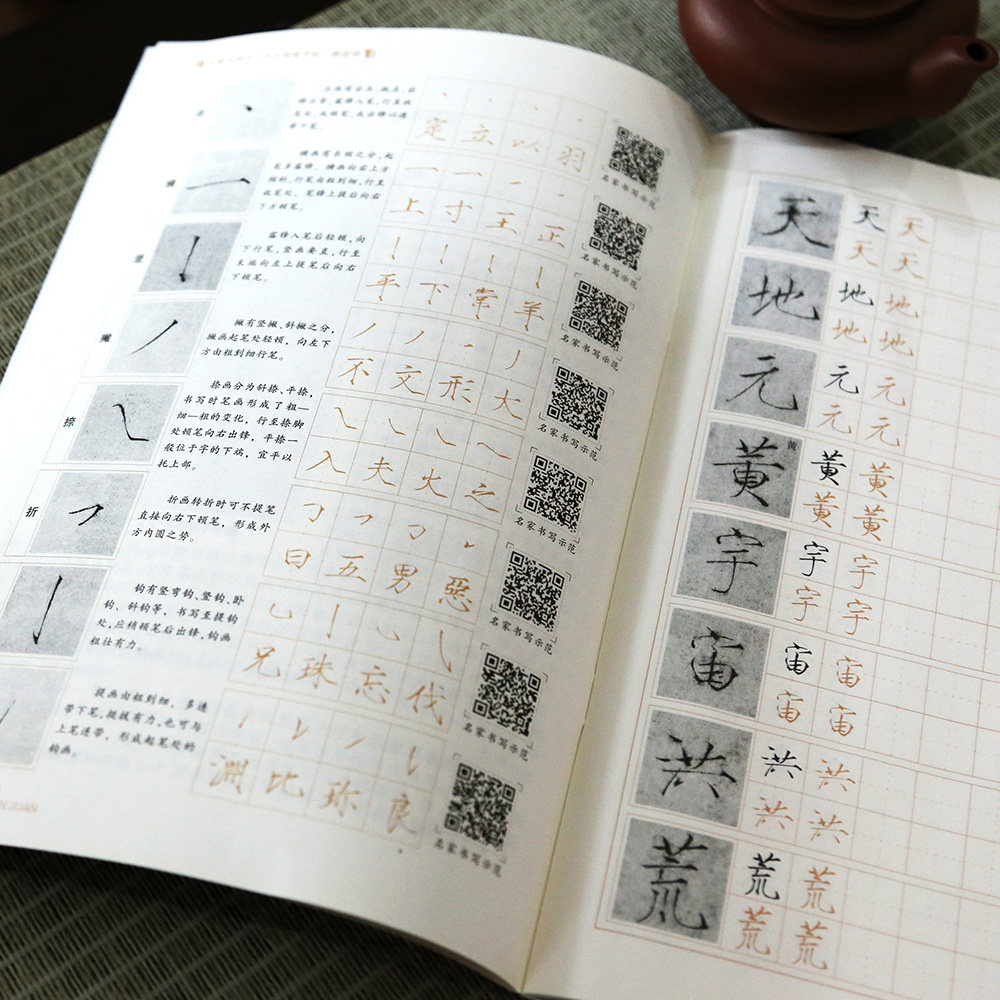 横
横画有长短之分,起
笔多露锋,横画向右上方
倾斜,行笔由粗到细,行至
收笔处,笔锋上提后向右
下方顿笔。
竖
露锋入笔后轻顿,向
下行笔,竖画要直,行至
末端向左上提笔后向右
下顿笔。
撇
撇有竖撇、斜撇之分,
撇画起笔处轻顿,向左下
方由粗到细行笔。
捺
捺画分为斜捺、平捺,
书写时笔画形成了粗—
细—粗的变化,行至捺脚
处顿笔向右出锋,平捺一
般位于字的下端,宜平以
托上部。
折
折画转折时可不提笔
直接向右下顿笔,形成外
方内圆之势。
钩有竖弯钩、竖钩、卧
钩、斜钩等,书写至提钩
处,应稍顿笔后出锋,钩画
粗壮有力。
提画由粗到细,多连
带下笔,挺拔有力,也可与
上笔连带,形成起笔处的
钩画。
定 立 以 羽
上 寸 王 正
平 下 常 羊
不 文 形 大
入 夫 火 之
曰 五 男 惡
兄 珠 忘 代
渊 比 弥 良
名家书写示范
名家书写示范
名家书写示范
名家书写示范
名家书写示范
名家书写示范
名家书写示范
名家书写示范
N JUAN
天 天 天
天 天
地 地 地
地 地
元 元 元
元 元
黄 黄 黄 黄
黄 黄
宇 宇 宇
宇 宇
宙 宙 宙
宙 宙
洪 洪 洪
洪 洪
荒 荒 荒
荒 荒